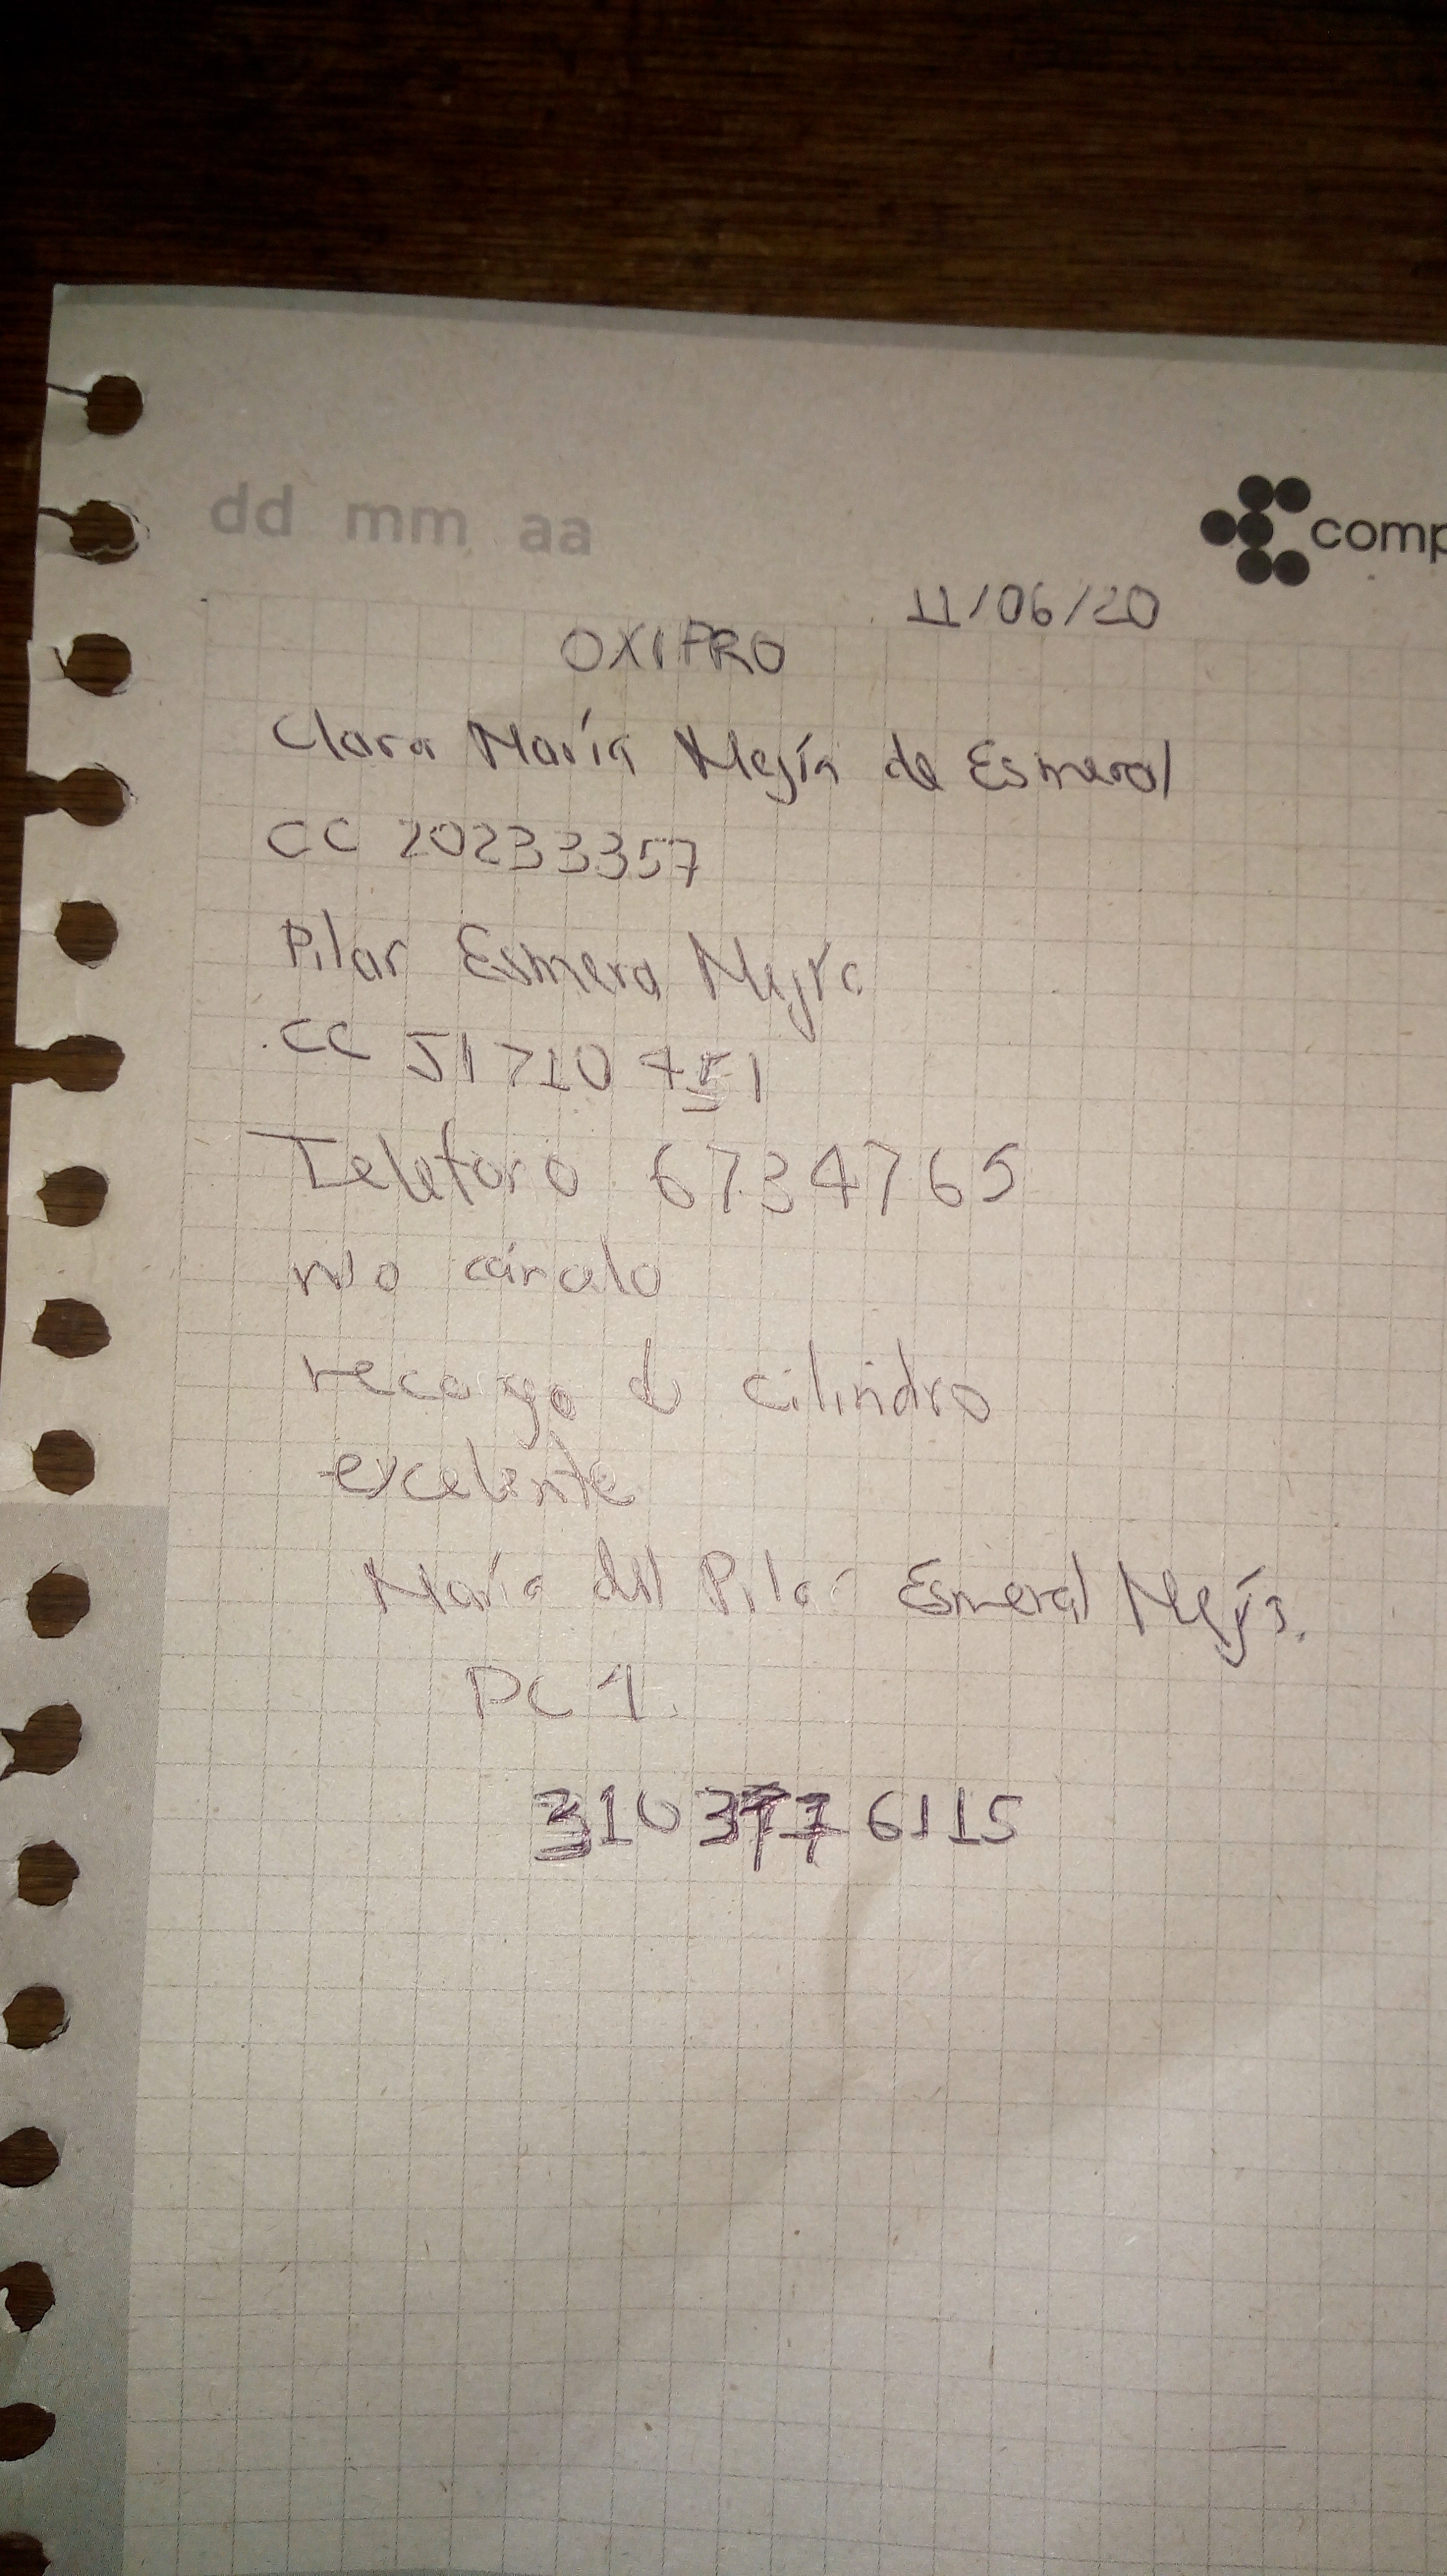 dd mm aa
comp
11/06/20
OXIPRO
Clara María Mejía de Esmeral
CC 20233357
Pilar Esmera Mejía
CC 51710451
Telefono 6734765
no cánula
recargo d cilindro
excelente
María del Pilar Esmeral Mejía.
PC 1.
310 377 6115